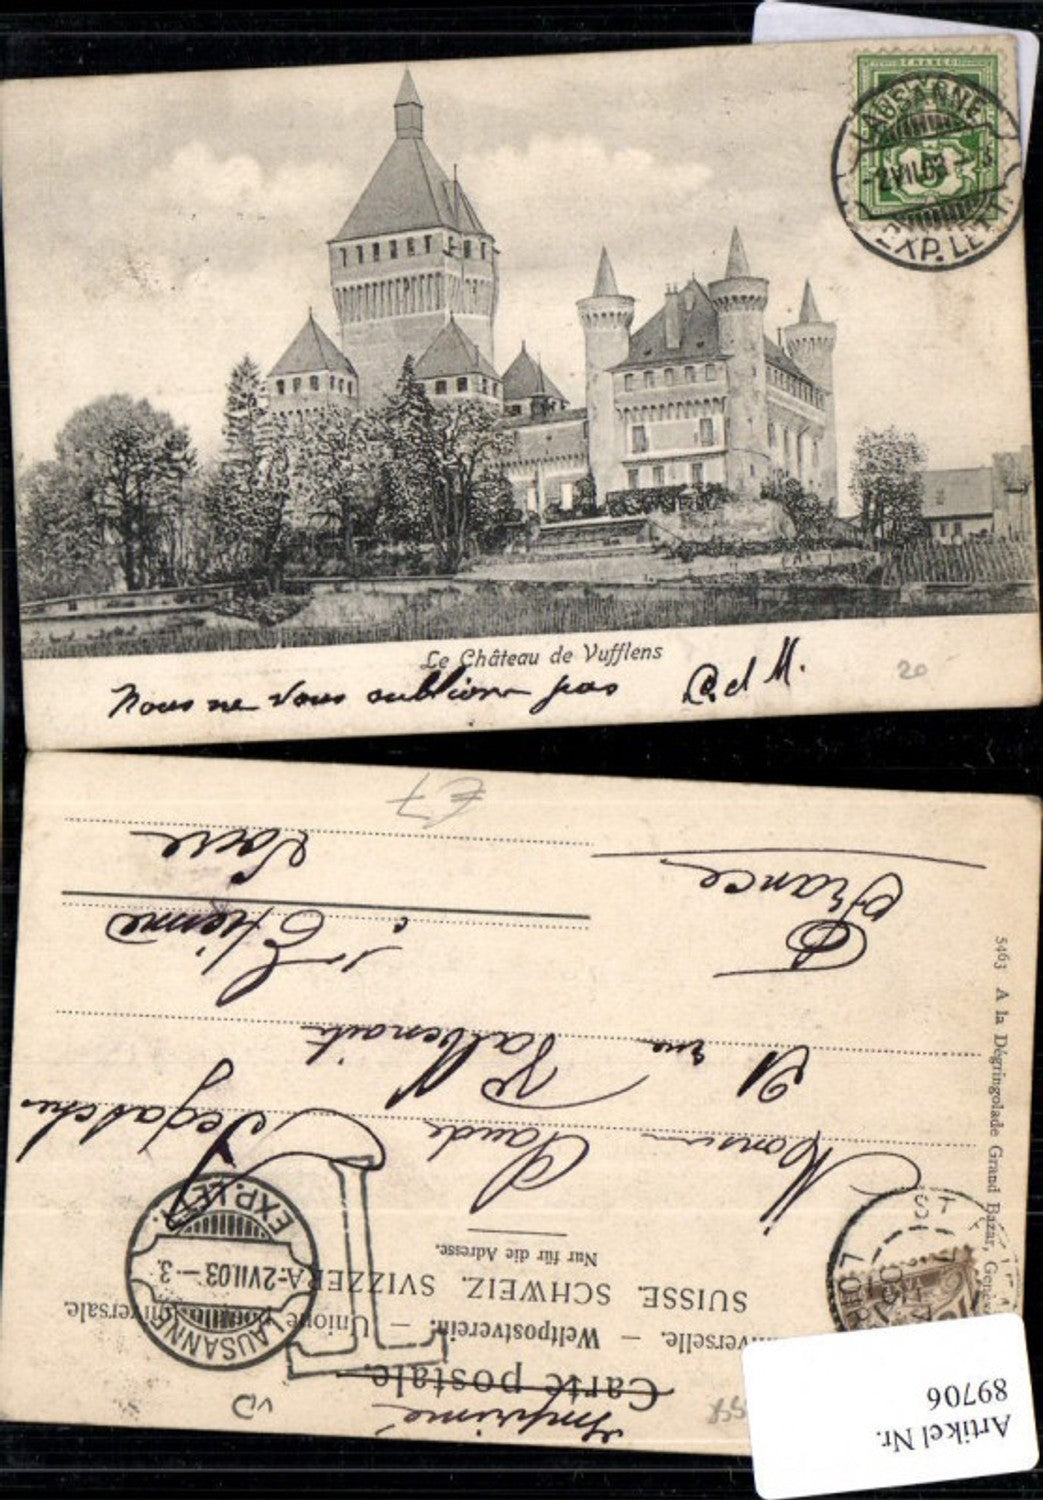 FRANCO
LAUSANNE
-2.VII.03-3
EXP. LETT.
Le Château de Vufflens
Nous ne vous oublions pas
C d M.
20
Imprimé
Carte postale.
Weltpostverein. — Unione
SUISSE. SCHWEIZ. SVIZZERA.
Nur für die Adresse.
LAUSANNE
-2.VII.03.-3.
EXP. LETT.
T
Monsieur Claude
21 rue
St Etienne
Loire
France
€7
VD
5463 A la Dégringolade Grand Bazar,
LOIRE
Artikel Nr.
89706